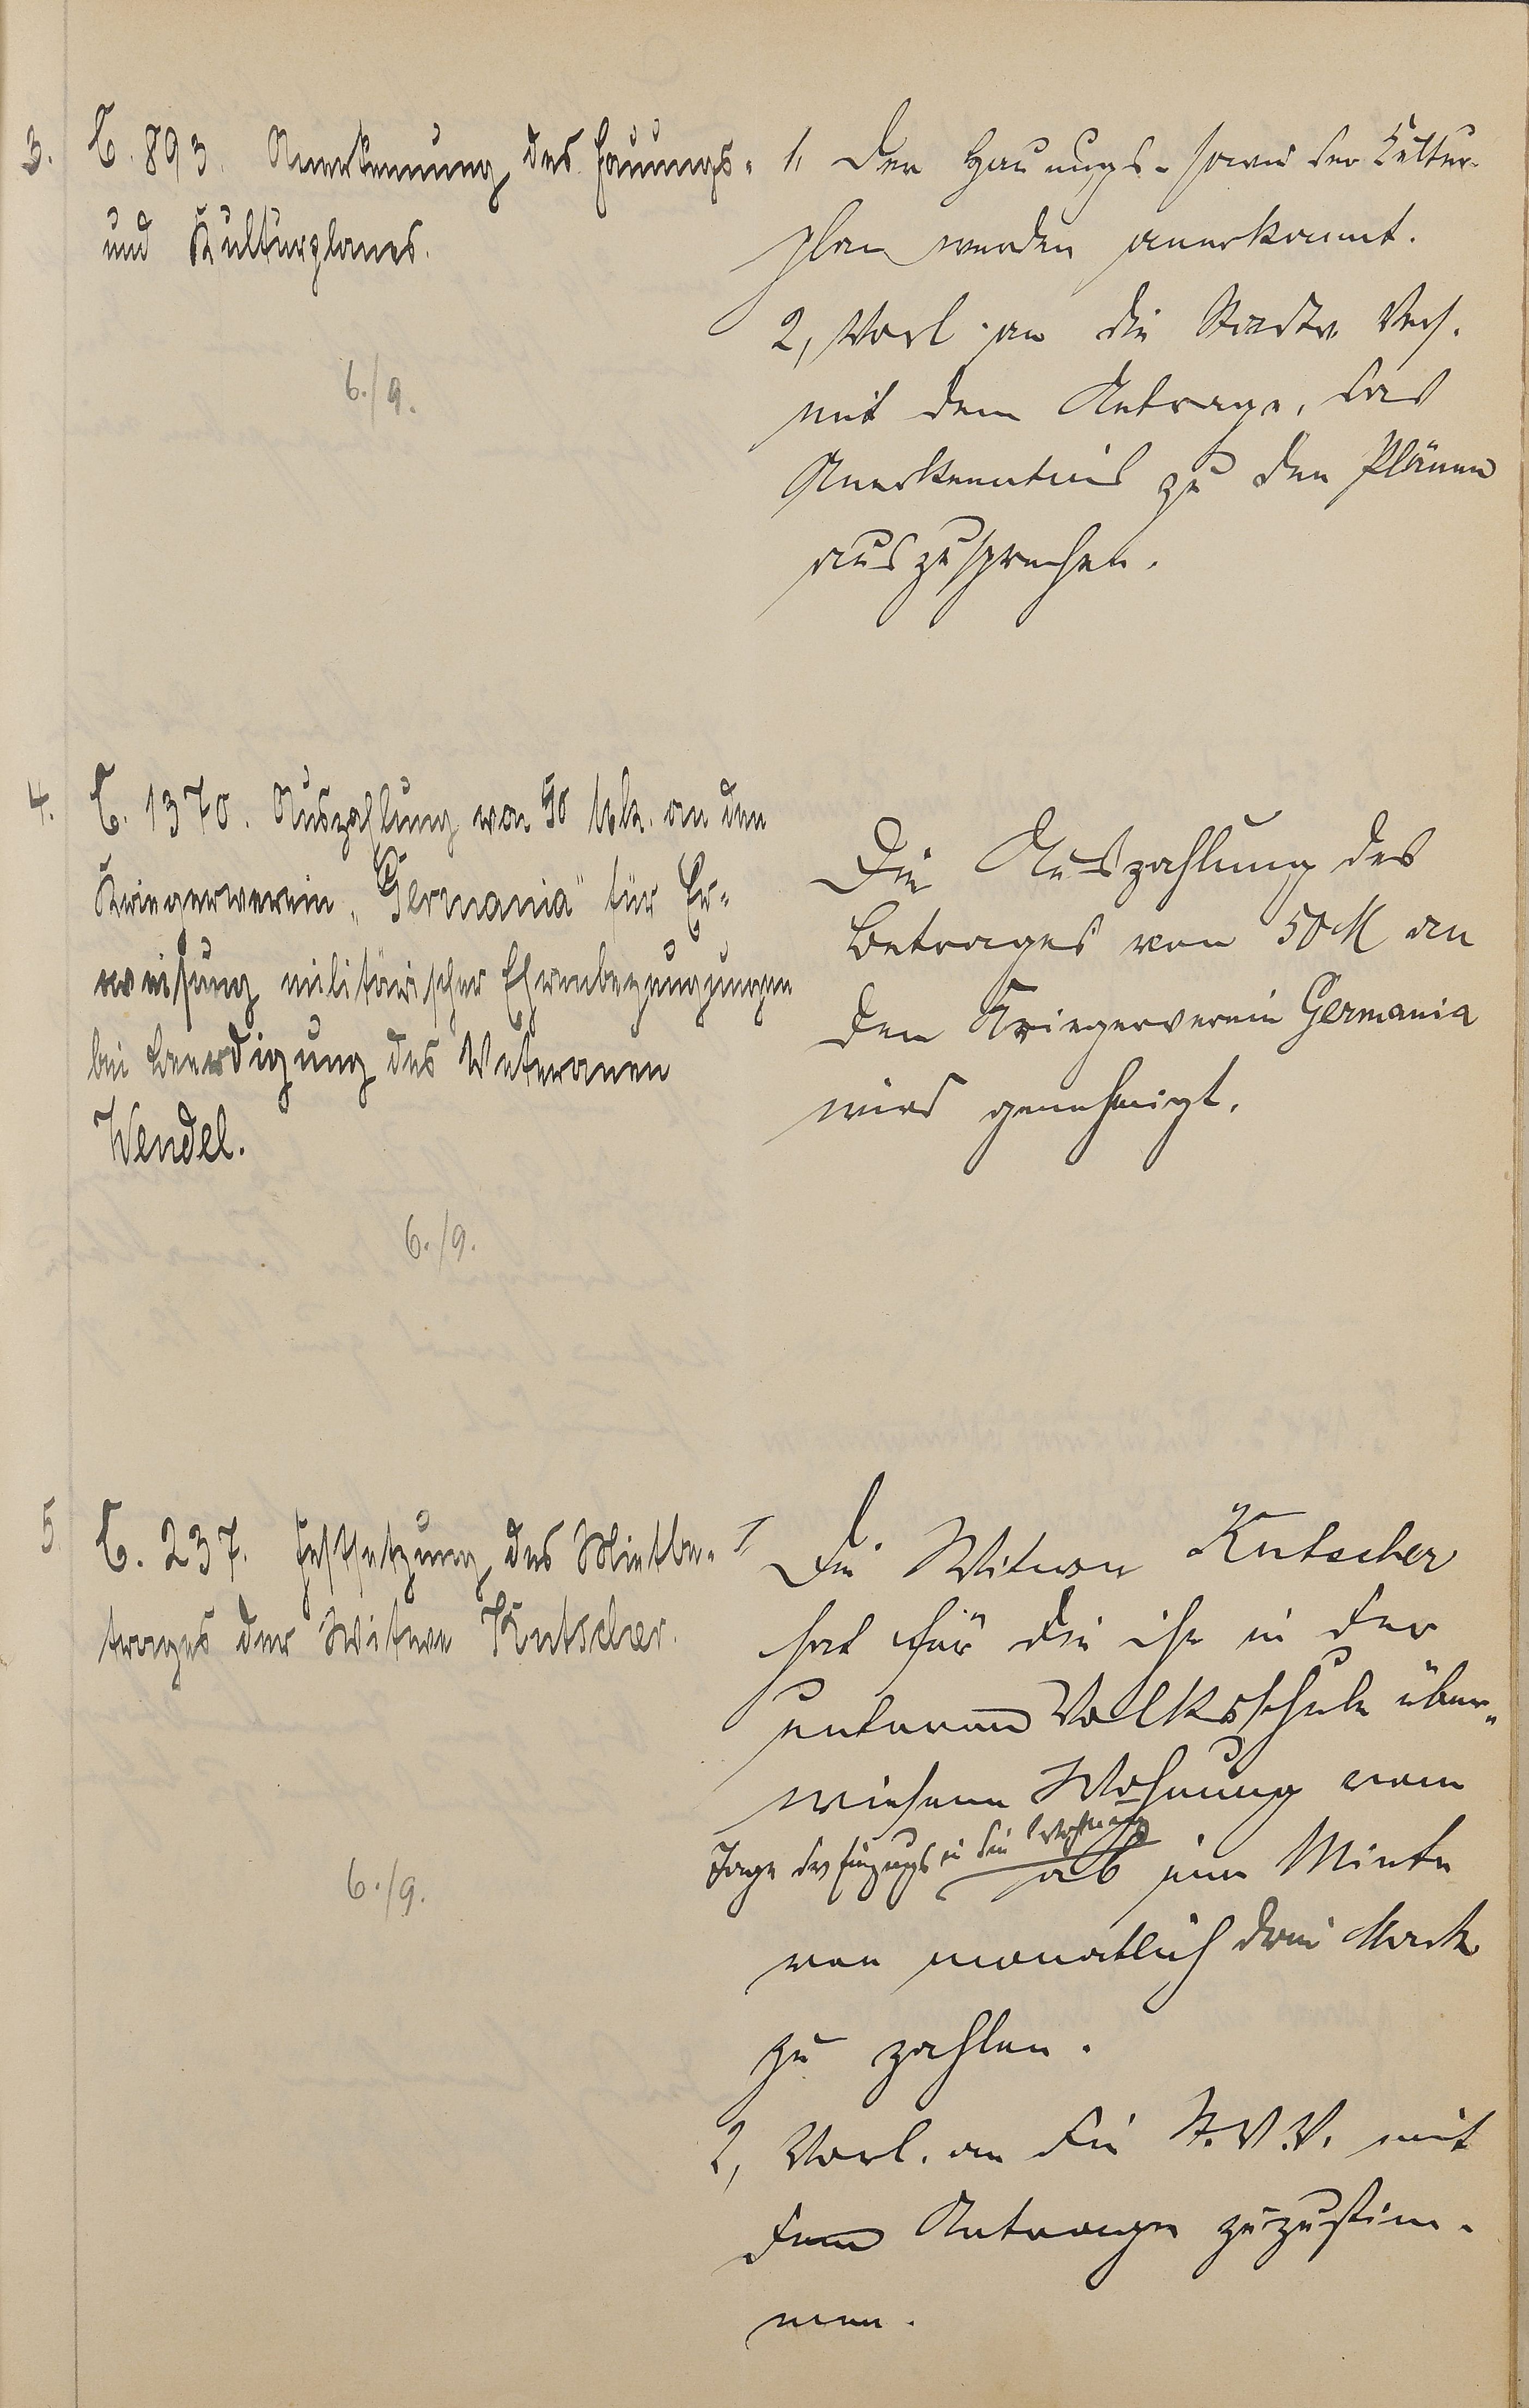 3. C. 893. Anerkennung des Hauungs-
und Kulturplanes.
6./9.
1, Der Hauungs- sowie der Kultur-
plan werden anerkannt.
2, Vorl. an die Stadtv. Vers.
mit dem Antrage, das
Anerkenntnis zu den Plänen
auszusprechen.
4. C. 1370. Auszahlung von 50 Mk. an den
Kriegerverein „Germania" für Er-
weisung militärischer Ehrenbezeugungen
bei Beerdigung des Veteranen
Wendel.
6./9.
Die Auszahlung des
Betrages von 50 M an
den Kriegerverein Germania
wird genehmigt.
5. C. 237. Festsetzung des Mietbe-
trages der Witwe Kutscher.
6./9.
1, Die Witwe Kutscher
hat für die ihr in der
unteren Volksschule über-
wiesene Wohnung vom
Tage des Einzugs in die Wohnung
ab eine Miete
von monatlich drei Mark
zu zahlen.
2, Vorl. an die St.V.V. mit
dem Antrage zuzustim-
men.